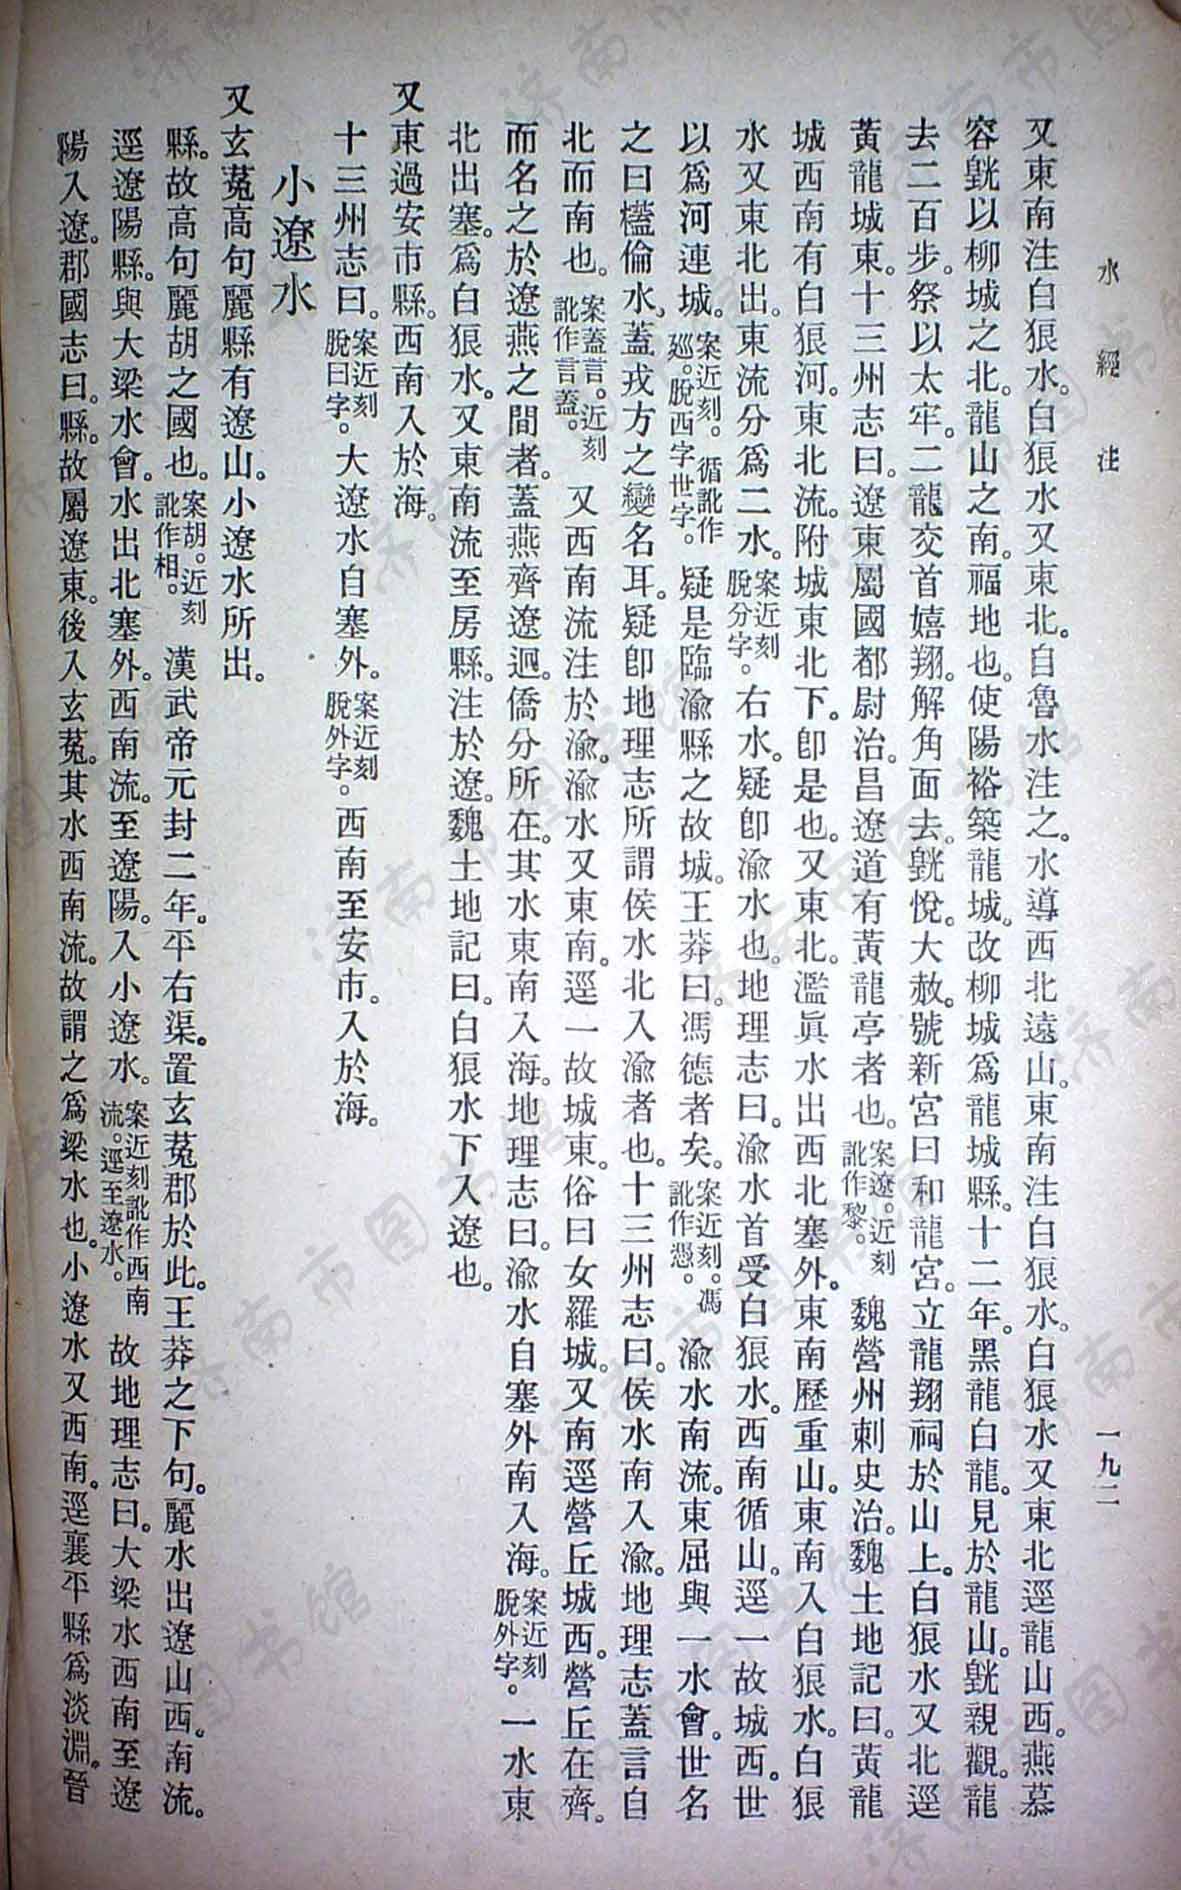 水經注
一九二
又東南注白狼水。白狼水又東北。自魯水注之。水導西北遠山。東南注白狼水。白狼水又東北逕龍山西。燕慕
容皝以柳城之北。龍山之南。福地也。使陽裕築龍城。改柳城爲龍城縣。十二年。黑龍白龍。見於龍山。皝親觀。龍
去二百步。祭以太牢。二龍交首嬉翔。解角而去。皝悅。大赦。號新宮曰和龍宮。立龍翔祠於山上。白狼水又北逕
黃龍城東。十三州志曰。遼東屬國都尉治。昌遼道有黃龍亭者也。案遼。近刻訛作黎。魏營州刺史治。魏土地記曰。黃龍
城西南有白狼河。東北流。附城東北下。卽是也。又東北。濫眞水出西北塞外。東南歷重山。東南入白狼水。白狼
水又東北出。東流分爲二水。案近刻脫分字。右水。疑卽渝水也。地理志曰。渝水首受白狼水。西南循山。逕一故城西。世
以爲河連城。案近刻。循訛作廵。脫西字世字。疑是臨渝縣之故城。王莽曰。馮德者矣。案近刻。馮訛作憑。渝水南流。東屈與一水會。世名
之曰㯼倫水。蓋戎方之變名耳。疑卽地理志所謂侯水北入渝者也。十三州志曰。侯水南入渝。地理志蓋言自
北而南也。案蓋言。近刻訛作言蓋。又西南流注於渝。渝水又東南。逕一故城東。俗曰女羅城。又南逕營丘城西。營丘在齊。
而名之於遼燕之間者。蓋燕齊遼迥。僑分所在。其水東南入海。地理志曰。渝水自塞外南入海。案近刻脫外字。一水東
北出塞。爲白狼水。又東南流至房縣。注於遼。魏土地記曰。白狼水下入遼也。
又東過安市縣。西南入於海。
十三州志曰。案近刻脫曰字。大遼水自塞外。案近刻脫外字。西南至安市。入於海。
小遼水
又玄菟高句麗縣有遼山。小遼水所出。
縣。故高句麗胡之國也。案胡。近刻訛作相。漢武帝元封二年。平右渠。置玄菟郡於此。王莽之下句。麗水出遼山西。南流。
逕遼陽縣。與大梁水會。水出北塞外。西南流。至遼陽。入小遼水。案近刻訛作西南流。逕至遼水。故地理志曰。大梁水西南至遼
陽入遼。郡國志曰。縣。故屬遼東。後入玄菟。其水西南流。故謂之爲梁水也。小遼水又西南。逕襄平縣爲淡淵。晉